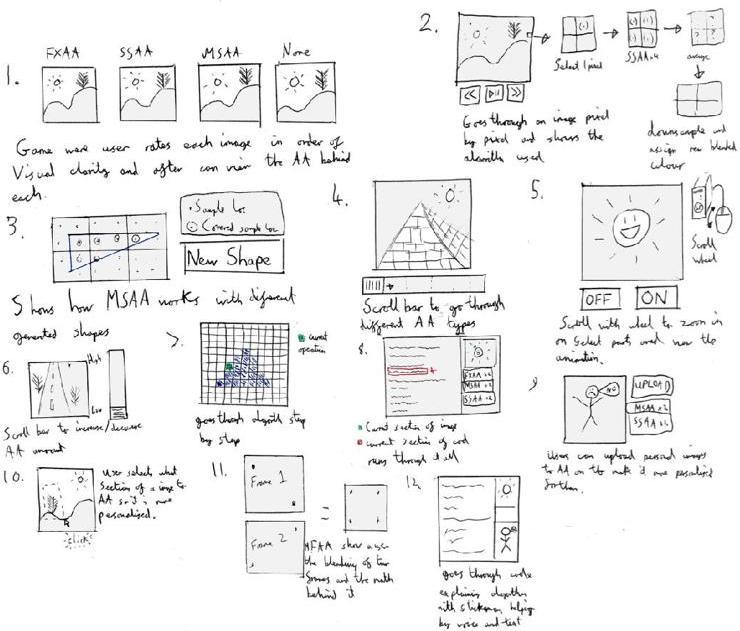 1.
FXAA SSAA MSAA None
Game were user rates each image in order of
Visual clarity and after can view the AA behind
each.
2.
Select 1 pixel
SSAA x4
average
Goes through an image pixel
by pixel and shows the
algorithm used
downsample and
assign new blended
colour
3.
• Sample loc
Covered sample loc
New Shape
Shows how MSAA works with different
generated shapes
4.
Scroll bar to go through
different AA types
5.
Scroll
wheel
OFF ON
Scroll with wheel to zoom in
on select parts and view the
animation.
6.
High
Low
Scroll bar to increase/decrease
AA amount
7.
current
operation
goes through algorithm step
by step
8.
FXAA x2
MSAA x2
SSAA x2
Current section of image
current section of code
runs through it all
9
UPLOAD
MSAA x2
SSAA x2
Users can upload personal images
to AA on to make it more personalised
for them.
10.
User selects what
section of image to
AA so it's more
personalised.
click
11.
Frame 1
Frame 2
=
show
the blending of two
frames and the math
behind it
12.
goes through code
explaining algorithm
with stickman helping
by voice and text